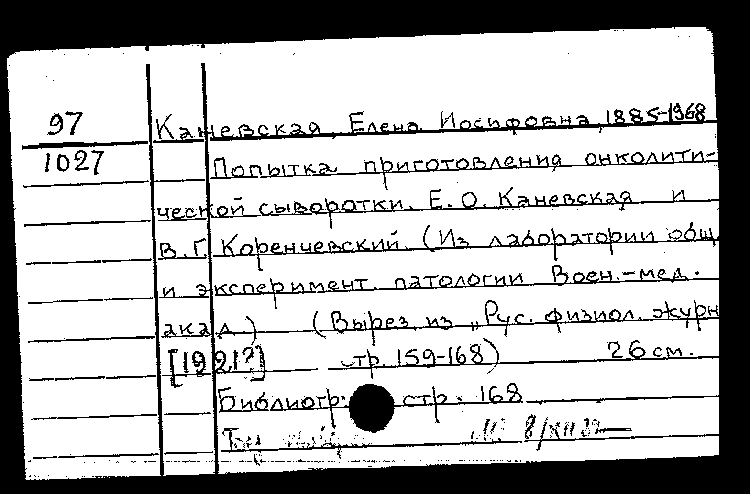 97
1027
Каневская, Елена Иосифовна, 1885-1968
Попытка приготовления онколити-
ческой сыворотки. Е. О. Каневская и
В. Г. Коренчевский. (Из лаборатории общ.
и эксперимент. патологии Воен.-мед.
акад.) (Вырез. из „Рус. физиол. журн
[1921?] стр. 159-168) 26 см.
Библиогр: стр. 168